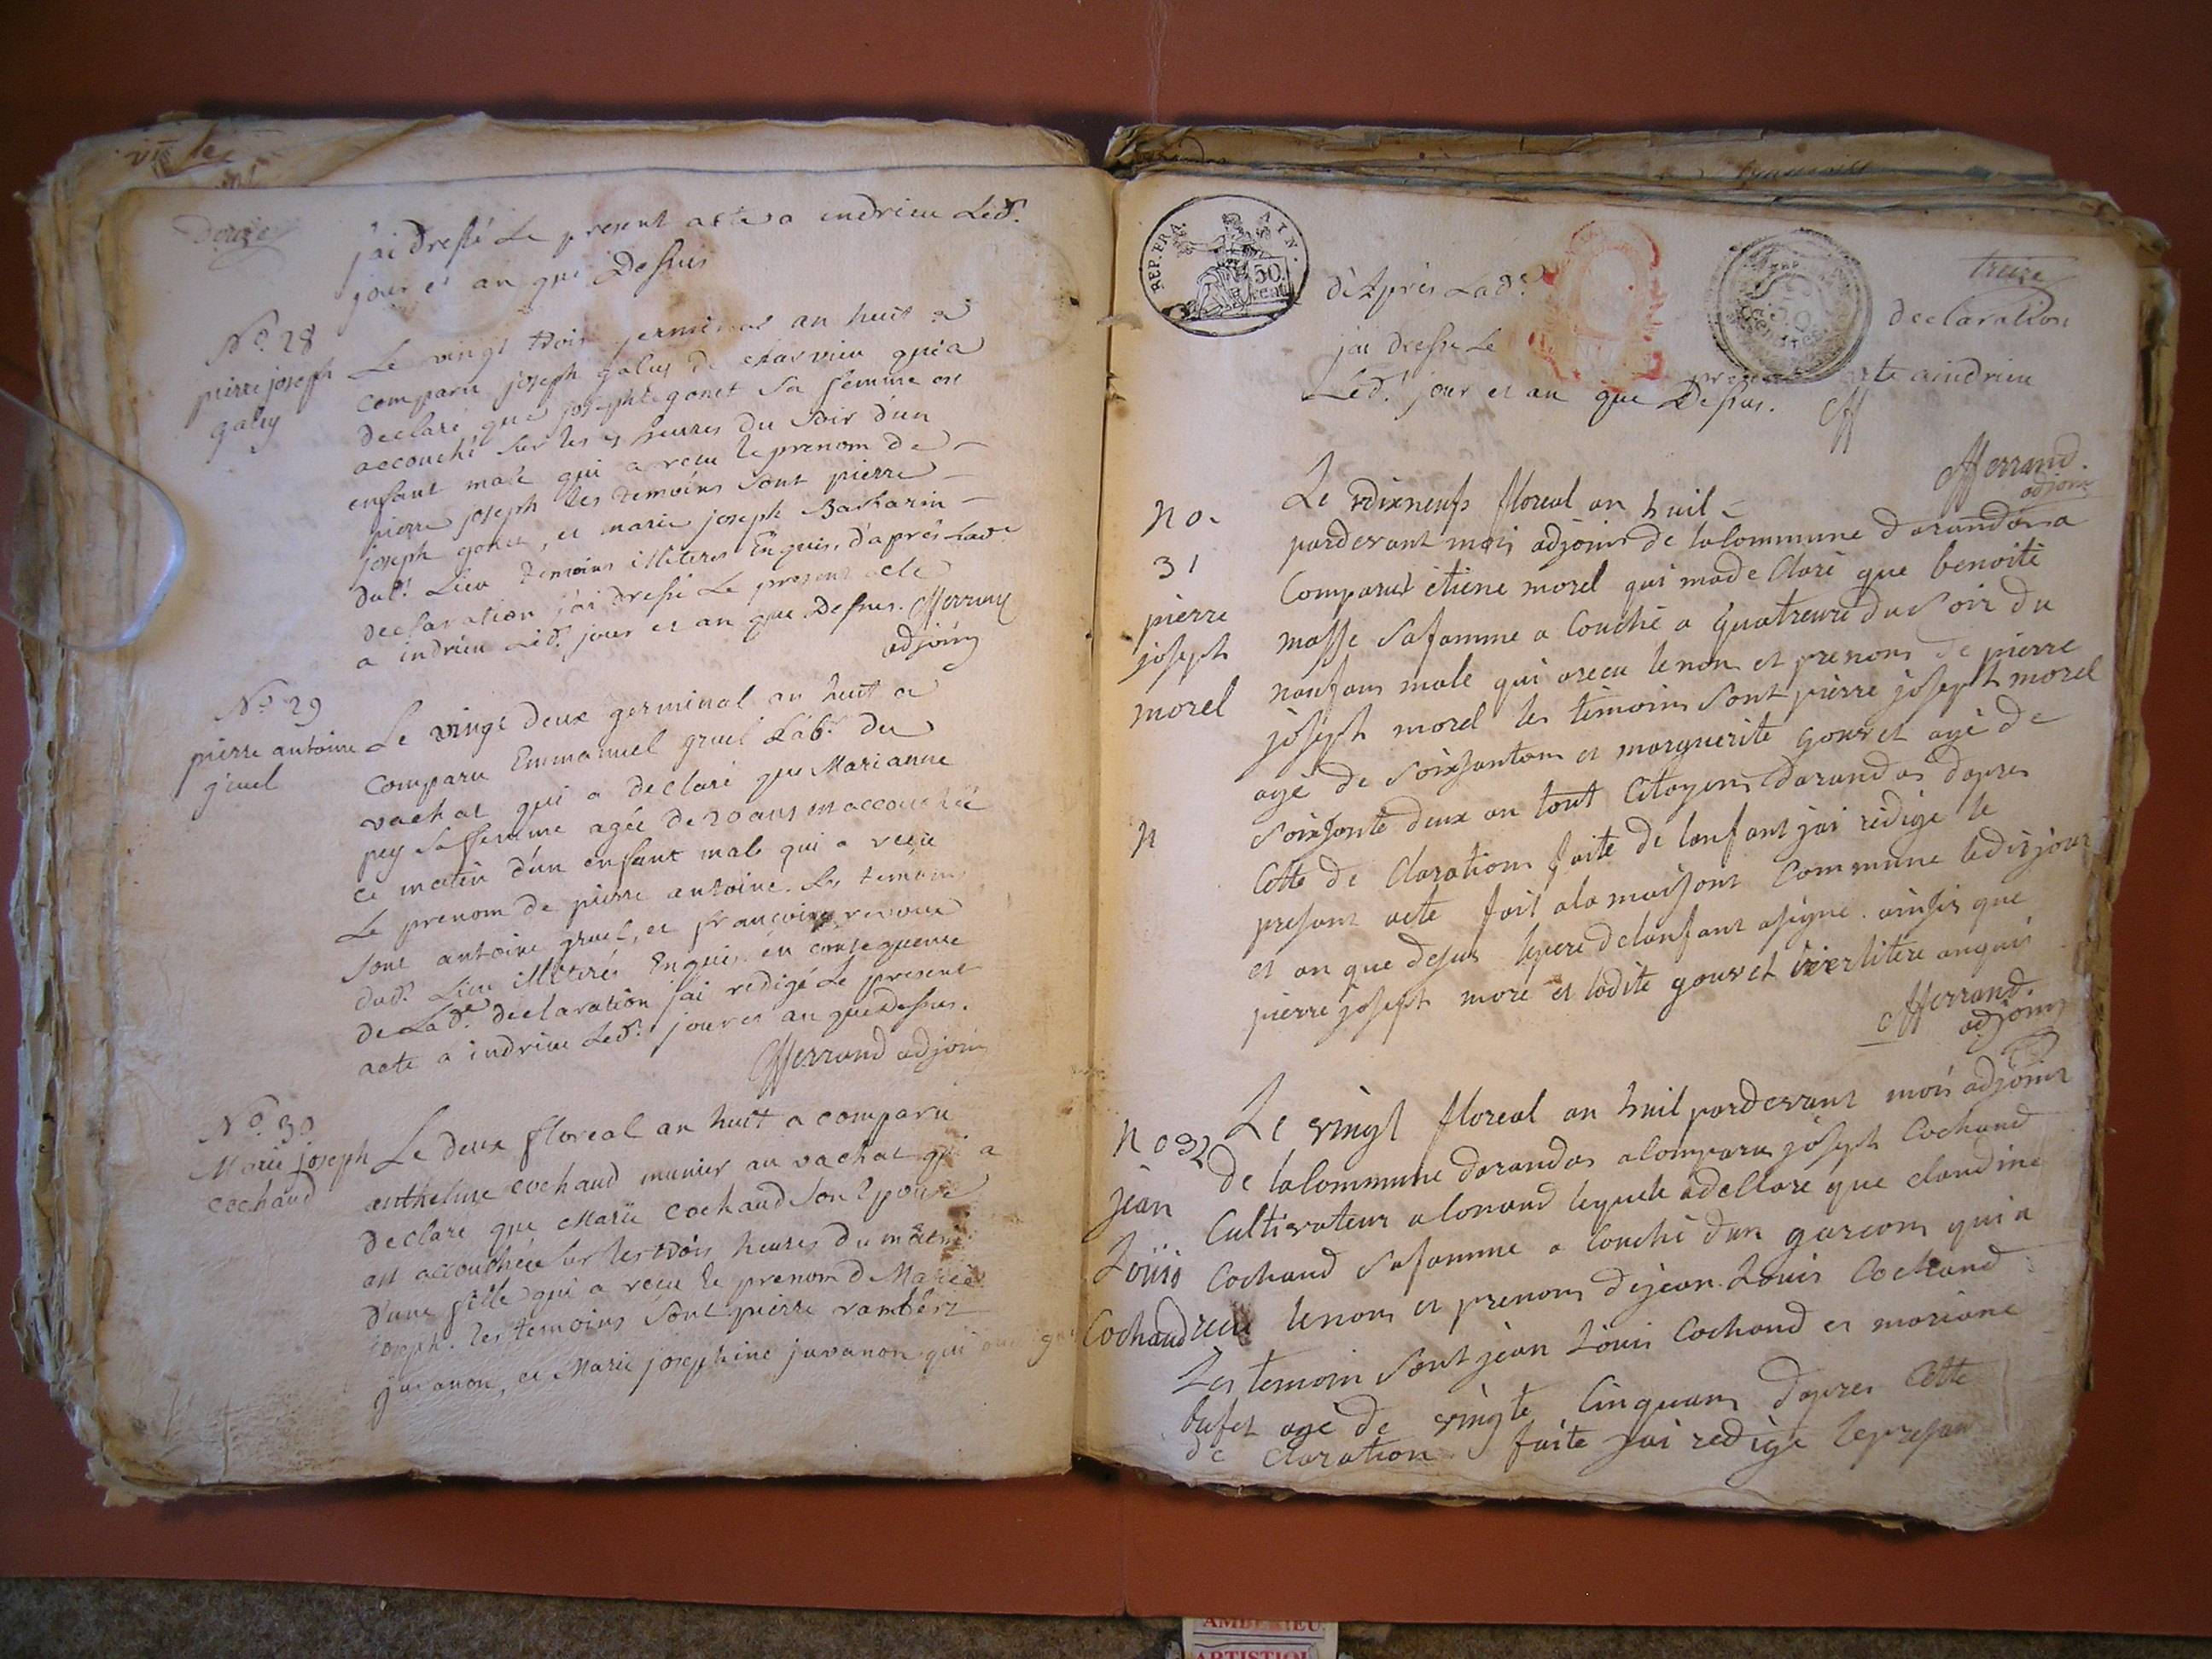 douze
j'ai dressé Le present acte a indrieu Led.
jour et an que Dessus
No. 28
pierre joseph
galey
Le vingt trois germinal an huit a
comparu joseph galey de charvieu qui a
declaré que josephte gonet sa femme est
accouché sur les 9 heures du soir d'un
enfant male qui a recu le prenom de
pierre joseph les temoins sont pierre
joseph gonet, et marie joseph Barbarin
dud. Lieu temoins illiteres Enquis, d'après Lade
declaration j'ai dressé Le present acte
a indrieu Led. jour et an que Dessus. fferrand
adjoint
No. 29
pierre antoine
gruel
Le vingt deux germinal an huit a
comparu Emmanuel gruel Lab. du
vachat qui a declaré que Marianne
pey sa femme agée de 20 ans est accouchée
ce matin d'un enfant male qui a recu
Le prenom de pierre antoine. Les temoins
sont antoine gruel, et francoise
dud. Lieu illiterés Enquis en consequence
de Lade declaration j'ai redigé Le present
acte a indrieu Led. jour et an que Dessus.
fferrand adjoint
No. 30
Marie joseph
cochaud
Le deux floreal an huit a comparu
anthelme cochaud munier au vachat qui a
declare que Marie cochaud son Epouse
est accouchée sur les trois heures du matin
d'une fille qui a recu le prenom de Marie
joseph. les temoins sont pierre rambert
juvanon, et Marie josephine juvanon qui
REP. FRA.
AIN.
50 cent
treize
dèzprès Lade declaration
j'ai dressé Le present acte a indrieu
Led. jour et an que Dessus.
fferrand.
adjoint
no.
31
pierre
joseph
morel
n
Le dixneufs floreal an huil
pardevant moi adjoint de la Commune darandas a
Comparut étiene morel qui ma de Claré que benoite
masse sa famme a Couché a quatreure du soir du
nanfans male qui areçu le nom et prenom de pierre
joseph morel les témoins sont pierre joseph morel
agé de soixantans et marguerite gouvet agé de
soixsante deux an tout Citoyens darandas dapres
Cette de Claration faite de lanfant jai rédige le
presant acte fait ala maison Commune ledit jour
et an que desus lepere delanfant asigné. ainsis que
pierre joseph more et ladite gouvet litere anquis
fferrand.
adjoint
no 32
jean
Loüis
Cochaud
Le vingt floreal an huil pardevant moi adjoint
de la Commune darandas a Comparu joseph Cochaud
Cultivateur alonaud lequele adellare que claudine
Cochaud sa famme a Couché dun garcom qui a
recu le nom et prenom de jean Louis Cochaud
Les temoin sont jean Louis Cochaud et mariane
bufet agé de vingte Cinquans dapres Cette
de Claration faite jai redigé le presan
AMBERIEU
ARTISTIQU